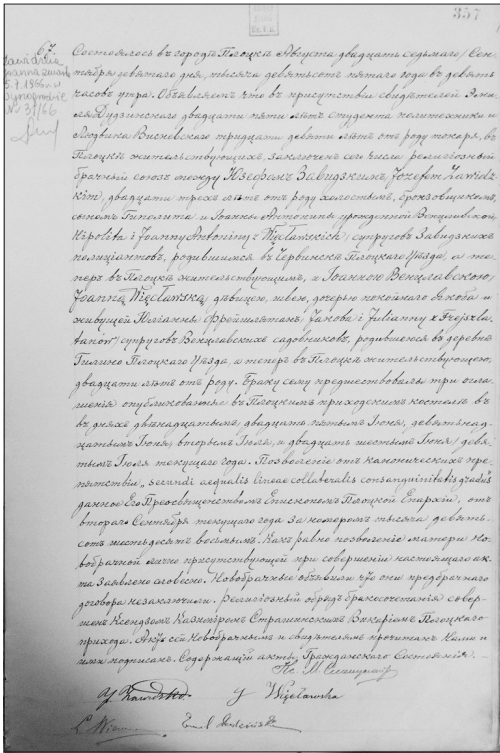 337
67.
Zawidzka
Joanna zmarła
1966 r. w
Nr. 31/66
Состоялось въ городѣ Плоцкѣ Августа двадцать седьмаго /Сен-
тября девятаго дня, тысяча девятьсот пятаго года въ девять
часовъ утра. Объявляемъ что въ присутствіи свидѣтелей Эми-
ля Дудзинскаго двадцати пяти лѣтъ студента политехника и
Людвика Висневскаго тридцати девяти лѣтъ отъ роду токаря, въ
Плоцкѣ жительствующихъ, заключенъ сего числа религіозный
брачный союзъ между Юзефомъ Завидзкимъ /Józefem Zawidz-
kim/, двадцати трехъ лѣтъ отъ роду холостымъ, бронзовщикомъ,
сыномъ Гиполита и Іоанны Антонины урожденной Венцлавской
/Hipolita i Joanny Antoniny z Więcławskich/ супруговъ Завидзкихъ
родившимся въ Червинскѣ Плоцкаго Уѣзда, а те-
перь въ Плоцкѣ жительствующимъ, и Іоанною Венцлавскою
/Joanną Więcławską/ дѣвицею, швею, дочерью покойнаго Якова и
живущей Юліанны /Jakóba i Julianny z
супруговъ Венцлавскихъ садовниковъ, родившеюся въ деревнѣ
Гилино Плоцкаго Уѣзда, а теперь въ Плоцкѣ жительствующею,
двадцати лѣтъ отъ роду. Браку сему предшествовали три огла-
шенія опубликованныя въ Плоцкимъ приходскимъ костелѣ въ
въ дняхъ двѣнадцатымъ/ двадцать пятымъ Іюня, девятьнад-
цатымъ Іюня/ вторымъ Іюля, и двадцать шестымъ Іюня/ девя-
тымъ Іюля текущаго года. Позволеніе отъ каноническихъ пре-
пятствій „secundi aequalis lineae collateralis consanguinitatis gradus"
данное Его Преосвященствомъ Епископомъ Плоцкой Епархіи, отъ
втораго Сентября текущаго года за номеромъ тысяча девять-
сотъ шестьдесятъ восьмымъ. Какъ равно позволеніе матери но-
вобрачной лично присутствующей при совершеніи настоящаго ак-
та заявлено словесно. Новобрачные объявили что они предбрачнаго
договора незаключили. Религіозный обрядъ бракосочетанія совер-
шенъ Ксендзомъ Казимѣромъ Страшинскимъ Викаріемъ Плоцкаго
прихода. Актъ сей Новобрачнымъ и свидѣтелямъ прочитанъ Нами и
ими подписанъ. Содержащій акты Гражданскаго Состоянія.
Кс. М.
J Zawidzki J Więcławska
L.